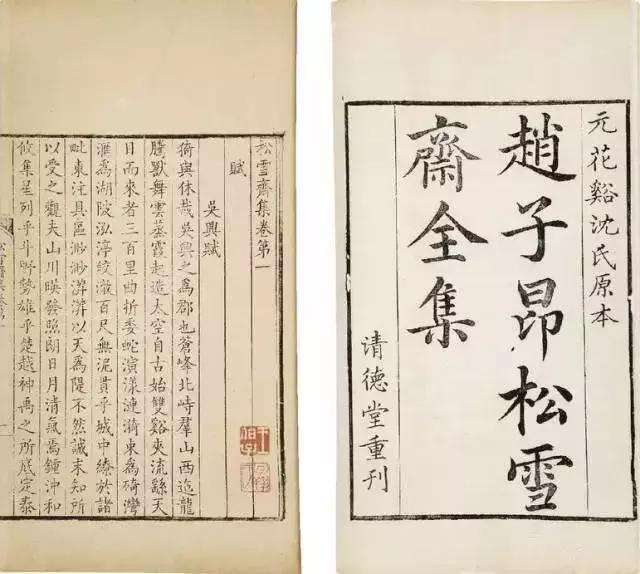 元花谿沈氏原本
趙子昂松雪
齋全集
清德堂重刊
松雪齋集卷第一
賦
吳興賦
猗與休哉吳興之為郡也蒼峰北峙羣山西迤龍
騰獸舞雲蒸霞起造太空自古始雙谿夾流繇天
目而來者三百里曲折委蛇演漾漣漪束為碕灣
滙為湖陂泓渟皎澈百尺無泥貫乎城中繚於諸
毗東注具區渺渺漭漭以天為隄不然誠未知所
以受之觀夫山川映發照朗日月清氣焉鍾沖和
攸集星列乎斗野勢雄乎楚越神禹之所底定泰